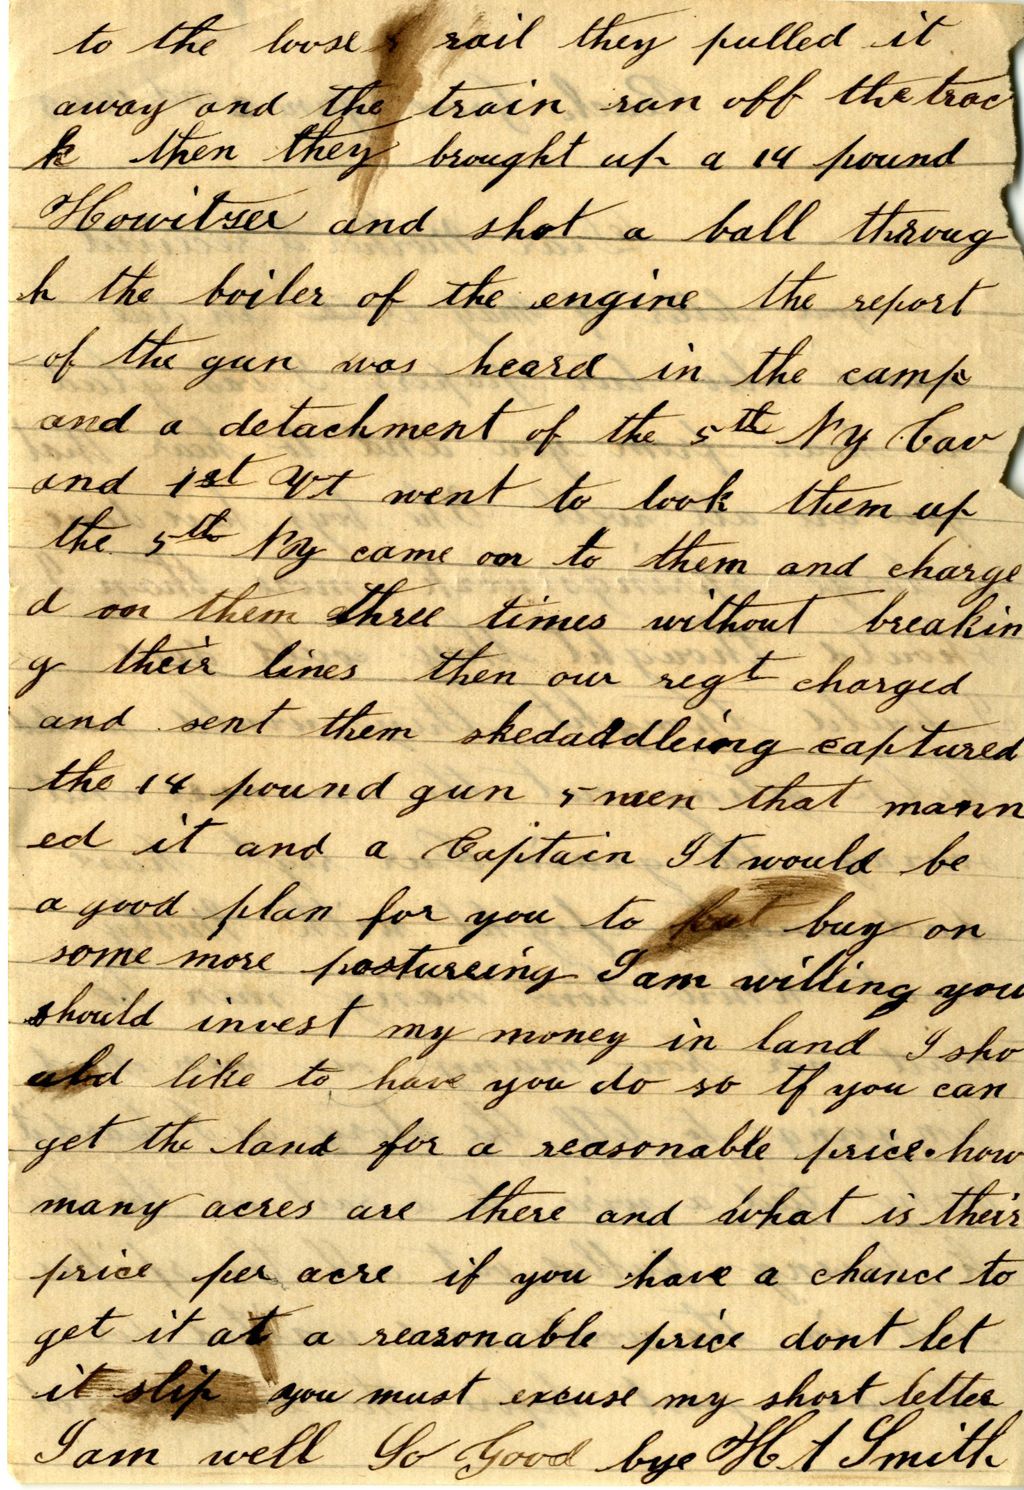 to the loose rail they pulled it
away and the train ran off the trac
k then they brought up a 14 pound
Howitzer and shot a ball throug
h the boiler of the engine the report
of the gun was heard in the camp
and a detachment of the 5th Ny Cav
and 1st Vt went to look them up
the 5th Ny came on to them and charge
d on them three times without breakin
g their lines then our regt charged
and sent them skedaddleing captured
the 14 pound gun 5 men that mann
ed it and a Captain It would be
a good plan for you to buy on
some more pastureing I am willing you
should invest my money in land I sho
uld like to have you do so If you can
get the land for a reasonable price. how
many acres are there and what is their
price per acre if you have a chance to
get it at a reasonable price dont let
it slip you must excuse my short letter
I am well So Good bye H A Smith